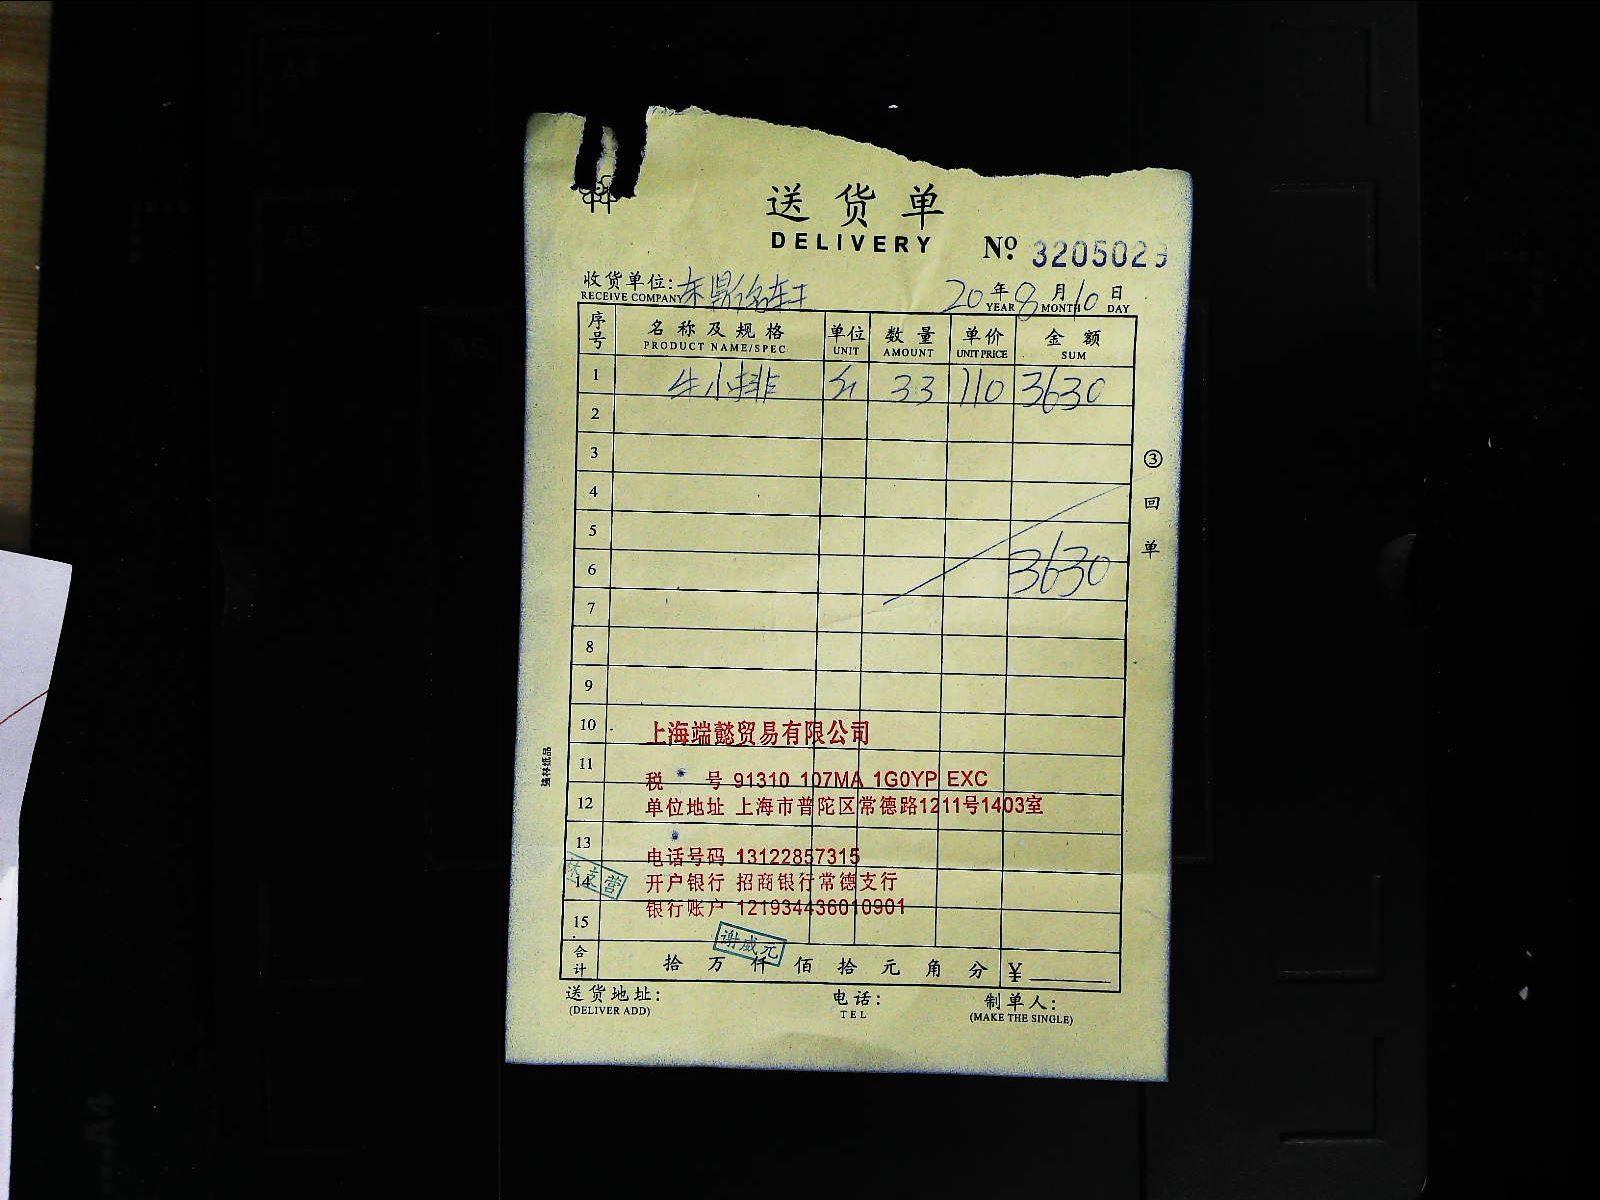 送货单
DELIVERY
№ 3205029
收货单位:
RECEIVE COMPANY
20 年 8 月 10 日
YEAR MONTH DAY
序号 名称及规格 单位 数量 单价 金额
PRODUCT NAME/SPEC UNIT AMOUNT UNIT PRICE SUM
1 牛小排 33 110 3630
2
3
4
5
6 3630
7
8
9
10
11
12
13
14
15
③回单
强林纸品
上海端懿贸易有限公司
税 号 91310 107MA 1G0YP EXC
单位地址 上海市普陀区常德路1211号1403室
电话号码 13122857315
开户银行 招商银行常德支行
银行账户 121934436010901
谢威元
合计 拾 万 仟 佰 拾 元 角 分 ¥
送货地址: 电话: 制单人:
(DELIVER ADD) TEL (MAKE THE SINGLE)
A4
A5
A6
A4